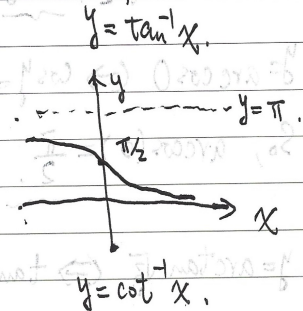 y = tan⁻¹ x.
y
y = π.
π/2
x
y = cot⁻¹ x.